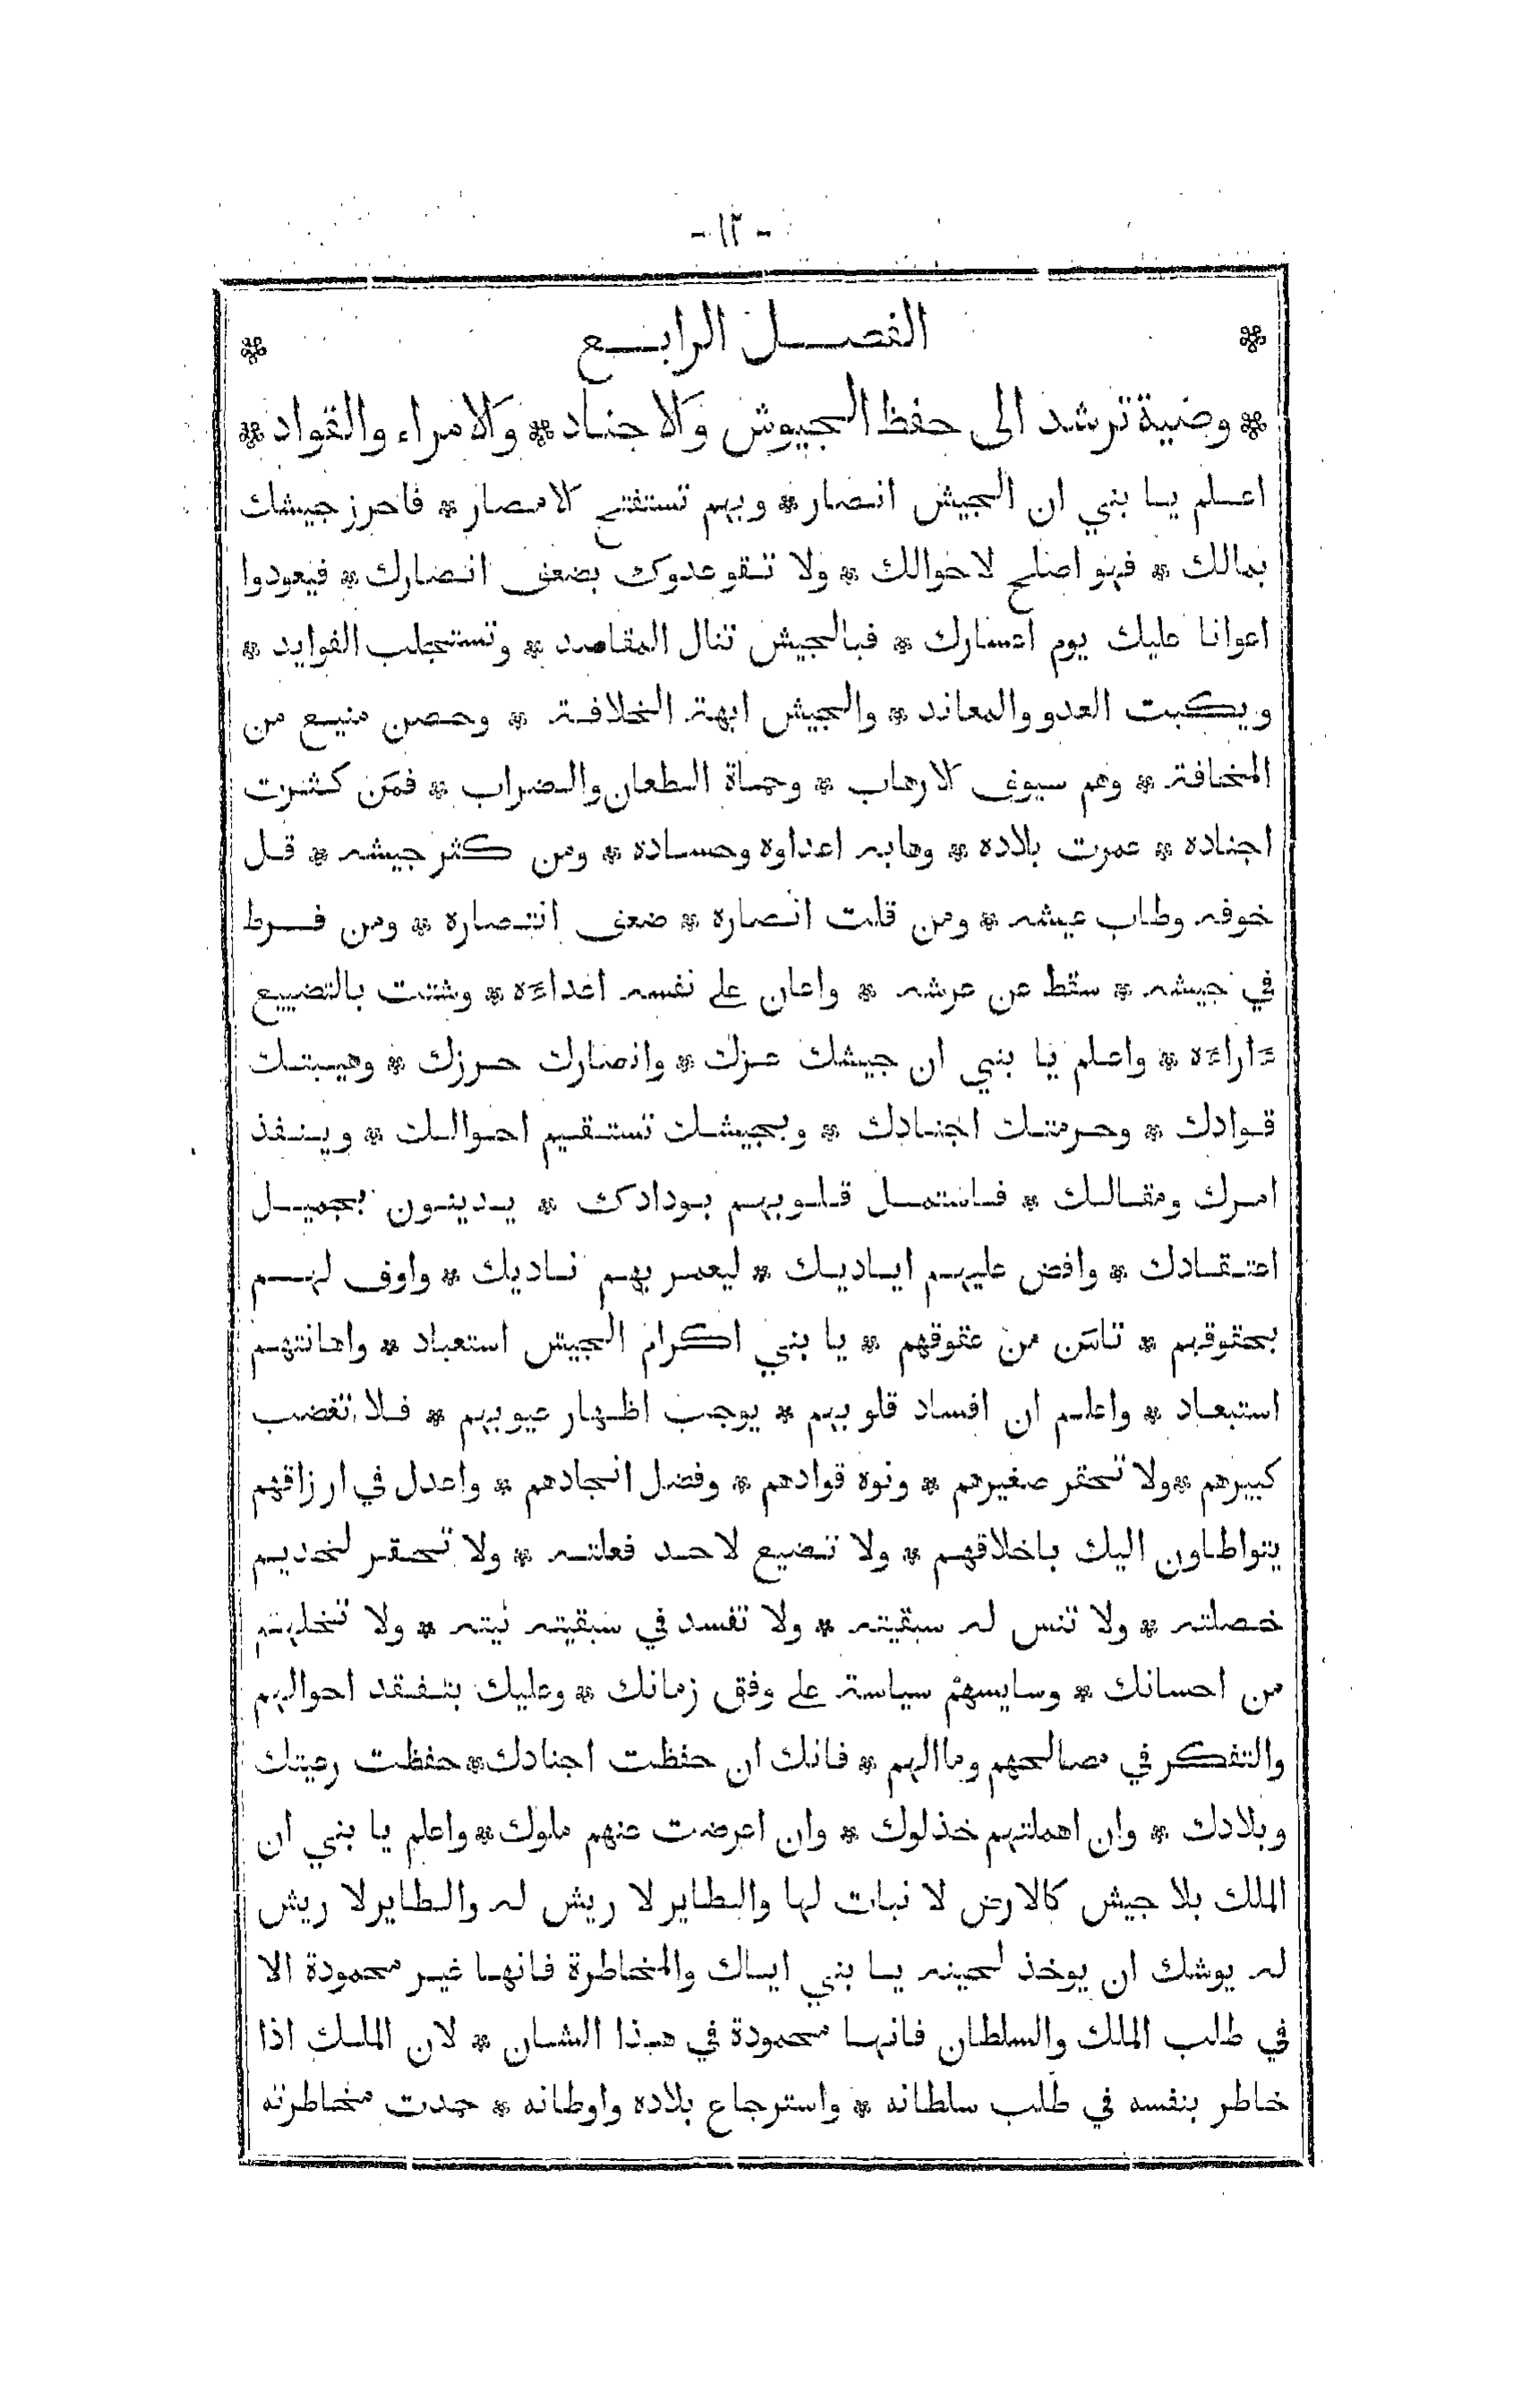 - ١٢ -
❊ الفصل الرابع ❊
❊ وصية ترشد الى حفظ الجيوش والاجناد ❊ والامراء والقواد ❊
اعلم يا بني ان الجيش انصار ❊ وبهم تستفتح الامصار ❊ فاحرز جيشك
بمالك ❊ فهو اصلح لاحوالك ❊ ولا تقو عدوك بضعف انصارك ❊ فيعودوا
اعوانا عليك يوم اعسارك ❊ فبالجيش تنال المقاصد ❊ وتستجلب الفوايد ❊
ويكبت العدو والمعاند ❊ والجيش ابهة الخلافة ❊ وحصن منيع من
المخافة ❊ وهم سيوف الارهاب ❊ وحماة الطعان والضراب ❊ فمن كثرت
اجناده ❊ عمرت بلاده ❊ وهابه اعداوه وحساده ❊ ومن كثر جيشه ❊ قل
خوفه وطاب عيشه ❊ ومن قلت انصاره ❊ ضعف انتصاره ❊ ومن فرط
في جيشه ❊ سقط عن عرشه ❊ واعان على نفسه اعداءه ❊ وشتت بالتضييع
ءاراءه ❊ واعلم يا بني ان جيشك عزك ❊ وانصارك حرزك ❊ وهيبتك
قوادك ❊ وحرمتك اجنادك ❊ وبجيشك تستقيم احوالك ❊ وينفذ
امرك ومقالك ❊ فاستمل قلوبهم بودادك ❊ يدينون بجميل
اعتقادك ❊ وافض عليهم اياديك ❊ ليعمر بهم ناديك ❊ واوف لهم
بحقوقهم ❊ تامن من عقوقهم ❊ يا بني اكرام الجيش استعباد ❊ واهانتهم
استبعاد ❊ واعلم ان افساد قلوبهم ❊ يوجب اظهار عيوبهم ❊ فلا تغضب
كبيرهم ❊ ولا تحقر صغيرهم ❊ ونوه قوادهم ❊ وفضل انجادهم ❊ واعدل في ارزاقهم
يتواطاون اليك باخلاقهم ❊ ولا تضيع لاحد فعلته ❊ ولا تحقر لخديم
خصلته ❊ ولا تنس له سبقيته ❊ ولا تفسد في سبقيته نيته ❊ ولا تخلهم
من احسانك ❊ وسايسهم سياسة على وفق زمانك ❊ وعليك بتفقد احوالهم
والتفكر في مصالحهم وماالهم ❊ فانك ان حفظت اجنادك ❊ حفظت رعيتك
وبلادك ❊ وان اهملتهم خذلوك ❊ وان اعرضت عنهم ملوك ❊ واعلم يا بني ان
الملك بلا جيش كالارض لا نبات لها والطاير لا ريش له والطاير لا ريش
له يوشك ان يوخذ لحينه يا بني اياك والمخاطرة فانها غير محمودة الا
في طلب الملك والسلطان فانها محمودة في هذا الشان ❊ لان الملك اذا
خاطر بنفسه في طلب سلطانه ❊ واسترجاع بلاده واوطانه ❊ حمدت مخاطرته